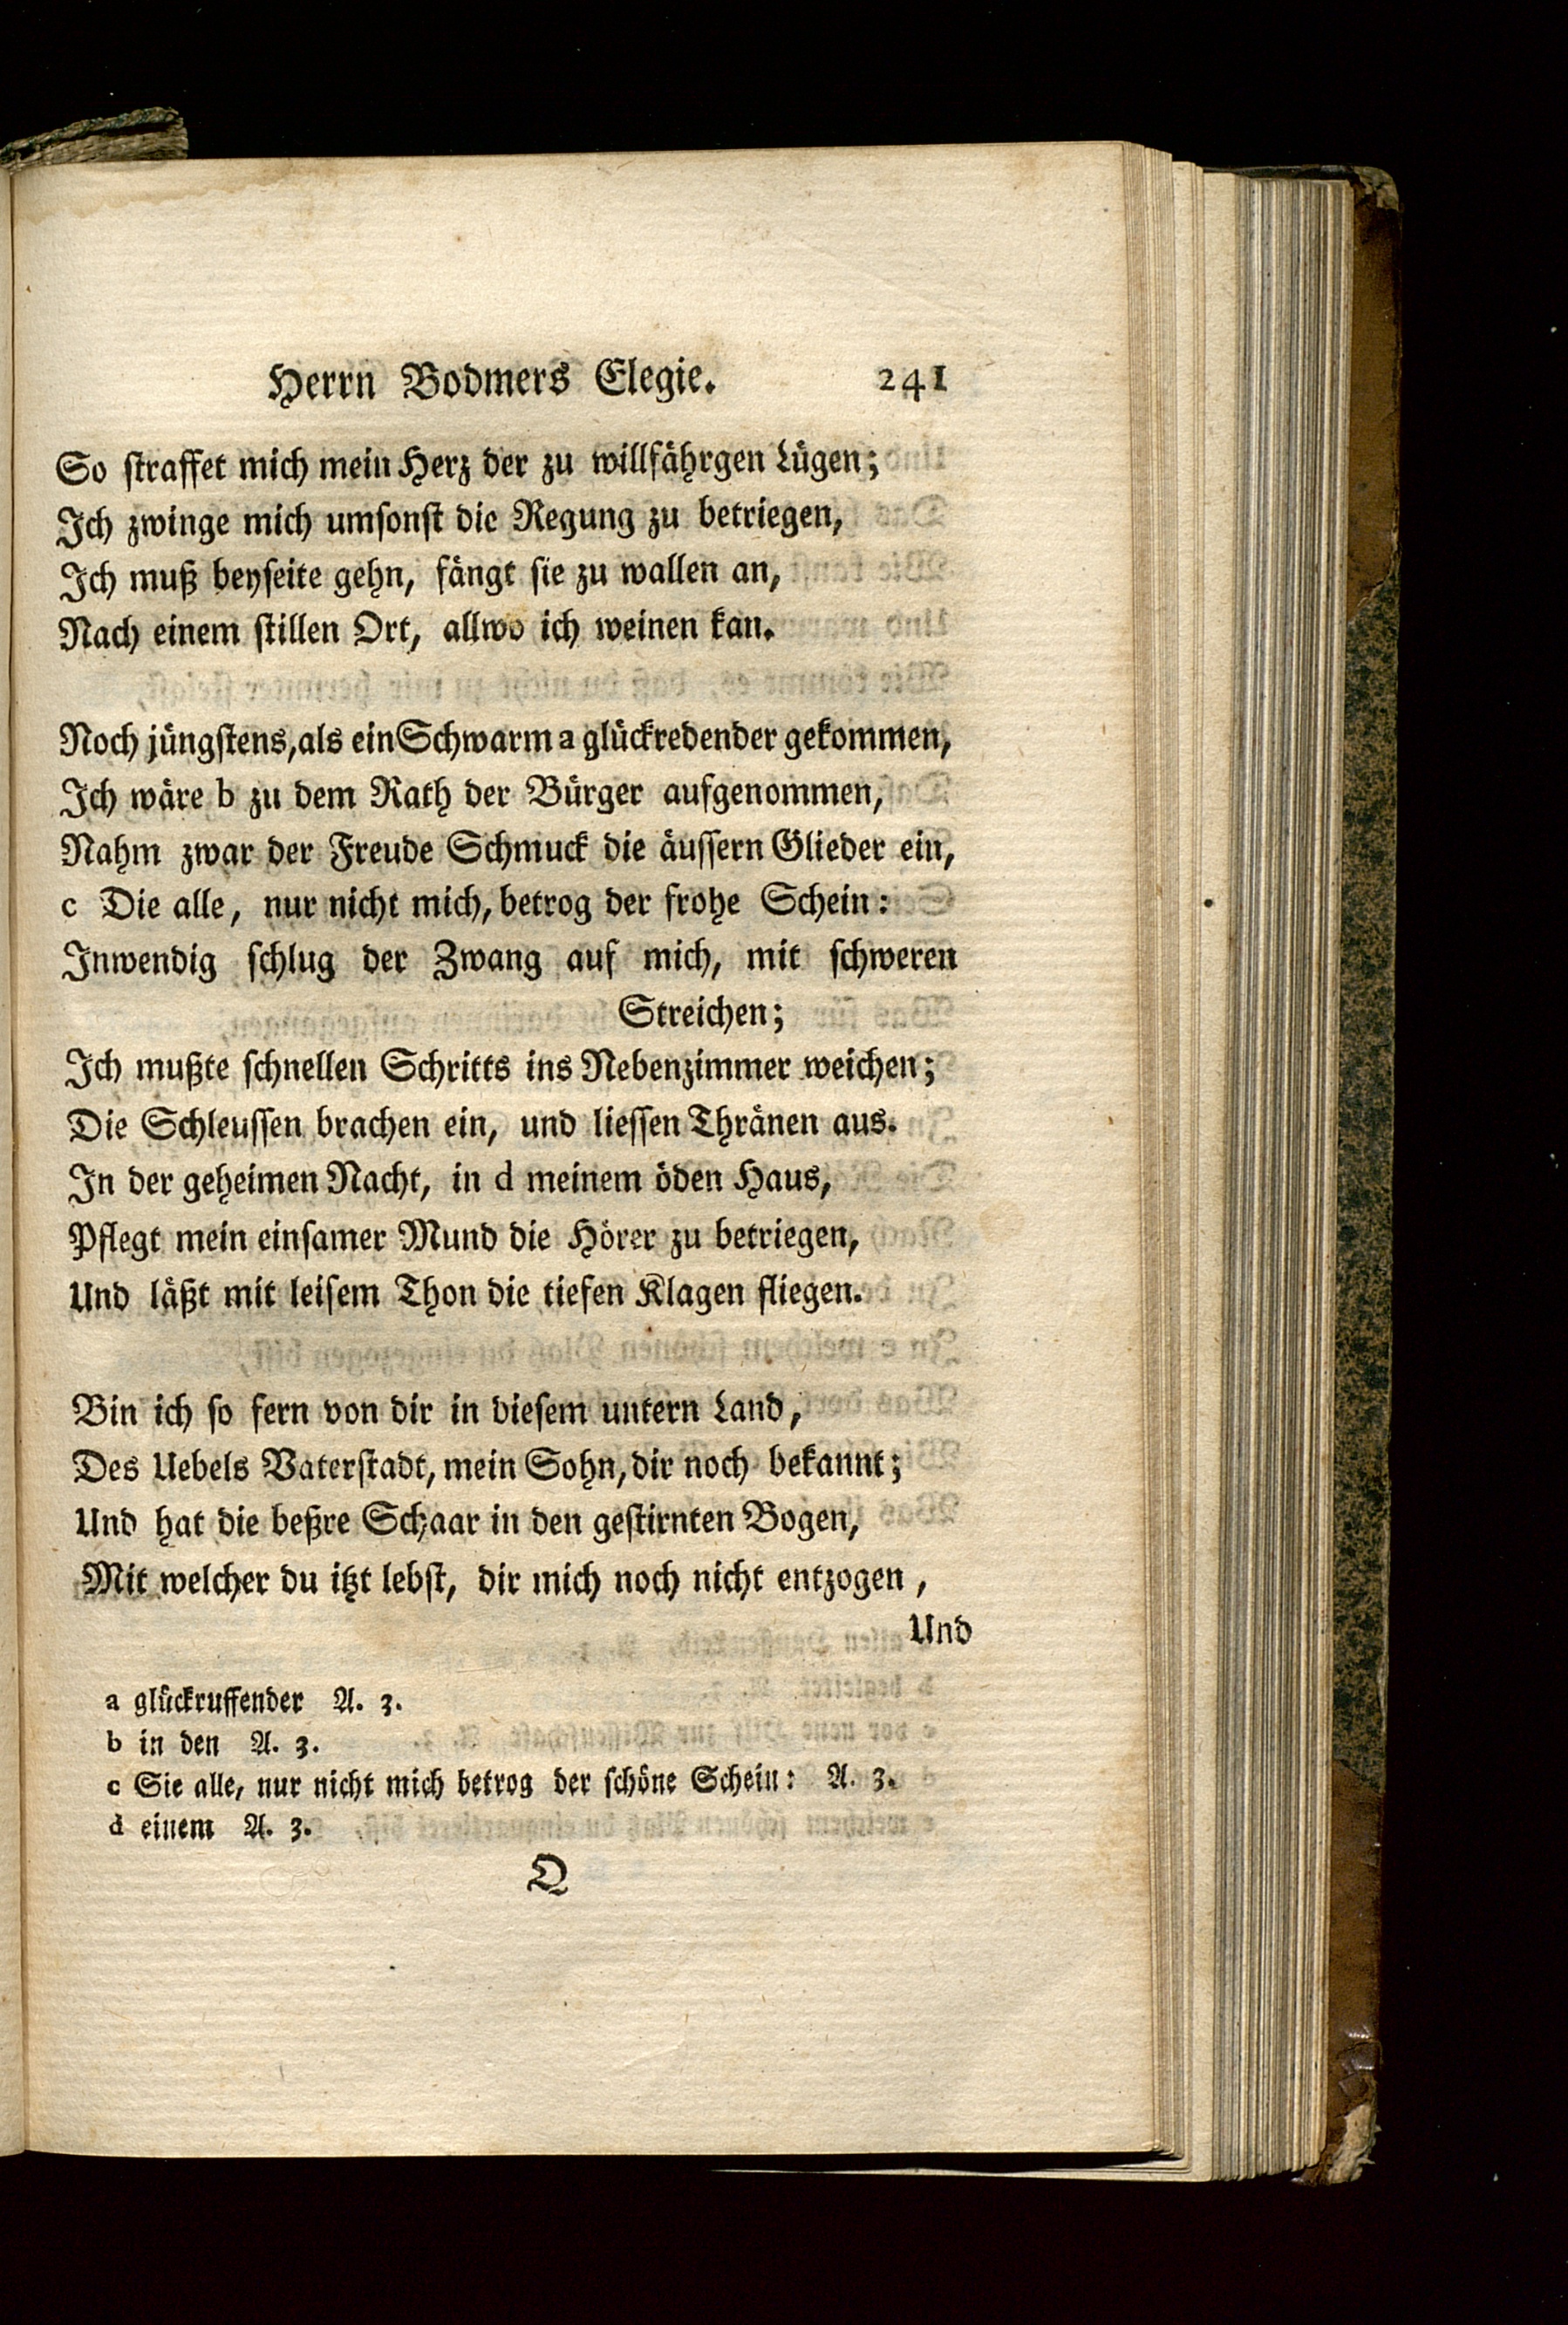 Herrn Bodmers Elegie. 241
So straffet mich mein Herz der zu willfährgen Lügen;
Ich zwinge mich umsonst die Regung zu betriegen,
Ich muß beyseite gehn, fängt sie zu wallen an,
Nach einem stillen Ort, allwo ich weinen kan.
Noch jüngstens, als ein Schwarm a glückredender gekommen,
Ich wäre b zu dem Rath der Bürger aufgenommen,
Nahm zwar der Freude Schmuck die äussern Glieder ein,
c Die alle, nur nicht mich, betrog der frohe Schein:
Inwendig schlug der Zwang auf mich, mit schweren
Streichen;
Ich mußte schnellen Schritts ins Nebenzimmer weichen;
Die Schleussen brachen ein, und liessen Thränen aus.
In der geheimen Nacht, in d meinem öden Haus,
Pflegt mein einsamer Mund die Hörer zu betriegen,
Und läßt mit leisem Thon die tiefen Klagen fliegen.
Bin ich so fern von dir in diesem untern Land,
Des Uebels Vaterstadt, mein Sohn, dir noch bekannt;
Und hat die beßre Schaar in den gestirnten Bogen,
Mit welcher du itzt lebst, dir mich noch nicht entzogen,
Und
a glückruffender A. 3.
b in den A. 3.
c Sie alle, nur nicht mich betrog der schöne Schein: A. 3.
d einem A. 3.
Q